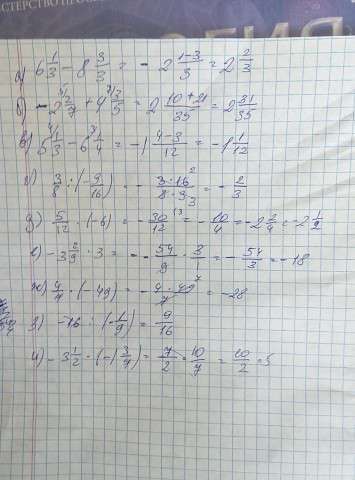 СТЕРСТВО ПРОСВЕ
а) 6 1/3 - 8 3/3 = - 2 1-3/3 = 2 2/3
б) - 2 2/7 + 4 3/5 = 2 10+21/35 = 2 31/35
в) 5 1/3 - 6 1/4 = -1 4-3/12 = -1 1/12
г) 3/8 : (- 9/16) = - 3·16/8·9 = - 2/3
д) 5/12 · (-6) = - 30/12 = - 10/4 = -2 2/4 = -2 1/2
е) -3 2/9 · 3 = - 54/9 · 3 = - 54/3 = -18
ж) 4/7 · (-49) = - 4·49/7 = -28
з) -16 : (- 1/9) = 9/16
и) -3 1/2 · (-1 3/7) = 7/2 · 10/7 = 10/2 = 5